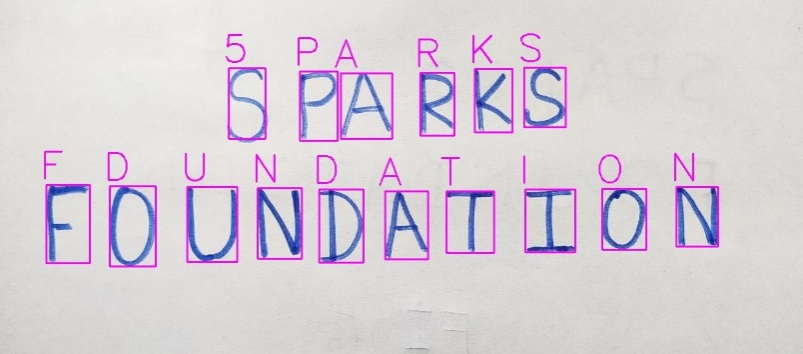 5 PA RKS
SPARKS
F D U N D A T I O N
FOUNDATION